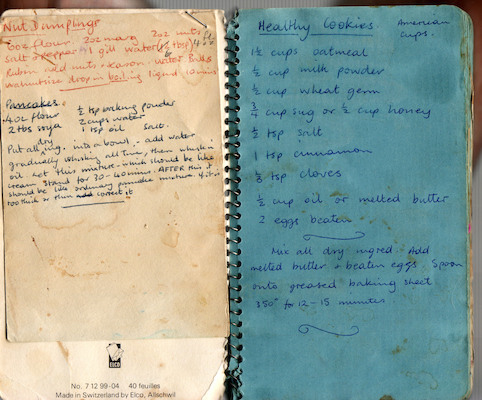 Nut Dumplings
6oz flour 2oz marg 2oz nuts
salt & pepper 1 gill water
Rub in add nuts + season. water. Balls
walnut size drop in boiling liquid 10 mins
Pancakes
4oz flour ½ tsp baking powder
2 tbs soya 2 cups water
1 tsp oil salt.
Put all dry ing. into a bowl - add water
gradually whisking all time, then whisk in
oil. Let this mixture - which should be like
cream stand for 30-60 mins. AFTER this it
should be like ordinary pancake mixture if it is
too thick or thin add correct it
ELCO
No. 7 12 99-04 40 feuilles
Made in Switzerland by Elco, Allschwil
Healthy Cookies American
cups.
1½ cups oatmeal
½ cup milk powder
½ cup wheat germ
¾ cup sug or ½ cup honey
½ tsp salt
1 tsp cinnamon
tsp cloves
½ cup oil or melted butter
2 eggs beaten
Mix all dry ingred. Add
melted butter + beaten eggs. Spoon
onto greased baking sheet
350° for 12-15 minutes